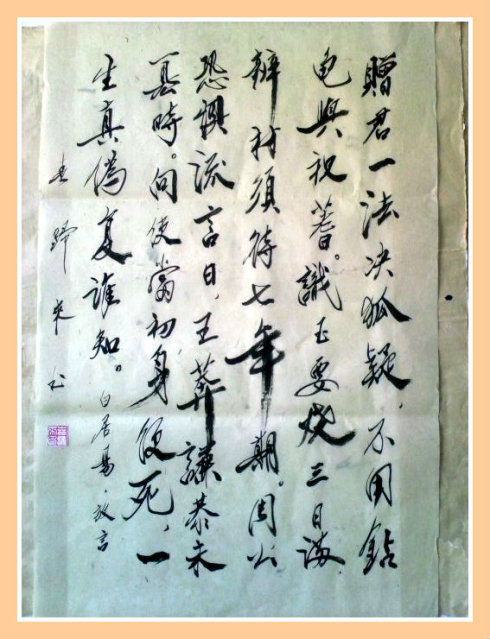 贈君一法决狐疑，不用鑽
龟與祝蓍。識玉要烧三日滿，
辨材須待七年期。周公
恐惧流言日，王莽謙恭未
篡時。向使當初身便死，一
生真偽复谁知。白居易·放言